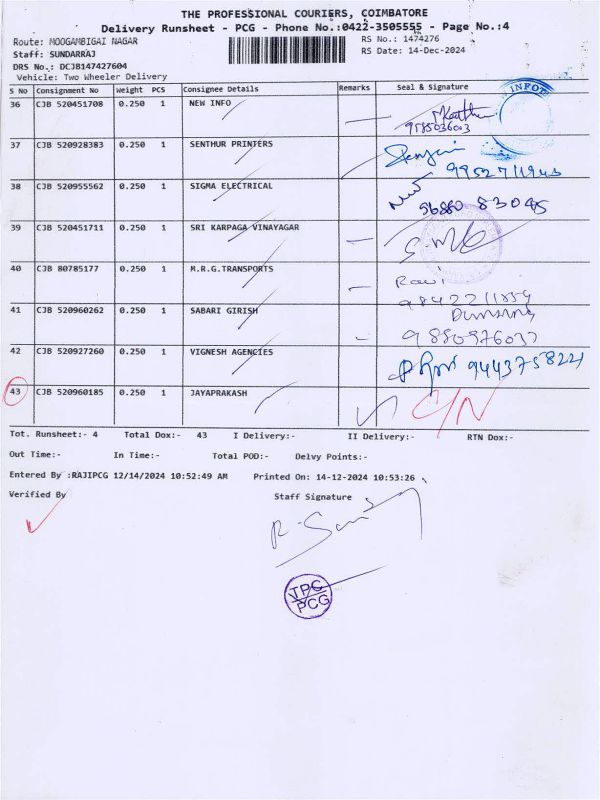 THE PROFESSIONAL COURIERS, COIMBATORE
Delivery Runsheet - PCG - Phone No.:0422-3505555 - Page No.:4
Route: MOOGAMBIGAI NAGAR RS No.: 1474276
Staff: SUNDARRAJ RS Date: 14-Dec-2024
DRS No.: DCJB147427604
Vehicle: Two Wheeler Delivery
S No Consignment No Weight PCS Consignee Details Remarks Seal & Signature
36 CJB 520451708 0.250 1 NEW INFO
INFOT
9585036003
37 CJB 520928383 0.250 1 SENTHUR PRINTERS
9952711943
38 CJB 520955562 0.250 1 SIGMA ELECTRICAL
56880 83045
39 CJB 520451711 0.250 1 SRI KARPAGA VINAYAGAR
40 CJB 80785177 0.250 1 M.R.G.TRANSPORTS
Ravi
9842211859
41 CJB 520960262 0.250 1 SABARI GIRISH
9880976037
42 CJB 520927260 0.250 1 VIGNESH AGENCIES
9443758221
43 CJB 520960185 0.250 1 JAYAPRAKASH
C/N
Tot. Runsheet:- 4 Total Dox:- 43 I Delivery:- II Delivery:- RTN Dox:-
Out Time:- In Time:- Total POD:- Delvy Points:-
Entered By :RAJIPCG 12/14/2024 10:52:49 AM Printed On: 14-12-2024 10:53:26
Verified By Staff Signature
TPC
PCG